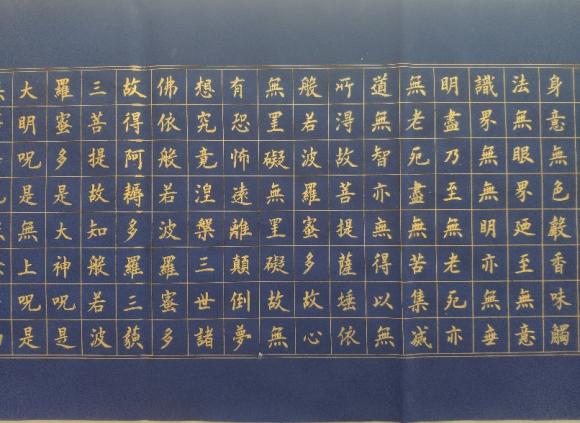 身意無色聲香味觸
法無眼界廼至無意
識界無無明亦無無
明盡乃至無老死亦
無老死盡無苦集滅
道無智亦無得以無
所得故菩提薩埵依
般若波羅蜜多故心
無罣礙無罣礙故無
有恐怖遠離顛倒夢
想究竟涅槃三世諸
佛依般若波羅蜜多
故得阿耨多羅三藐
三菩提故知般若波
羅蜜多是大神呪是
大明呪是無上呪是